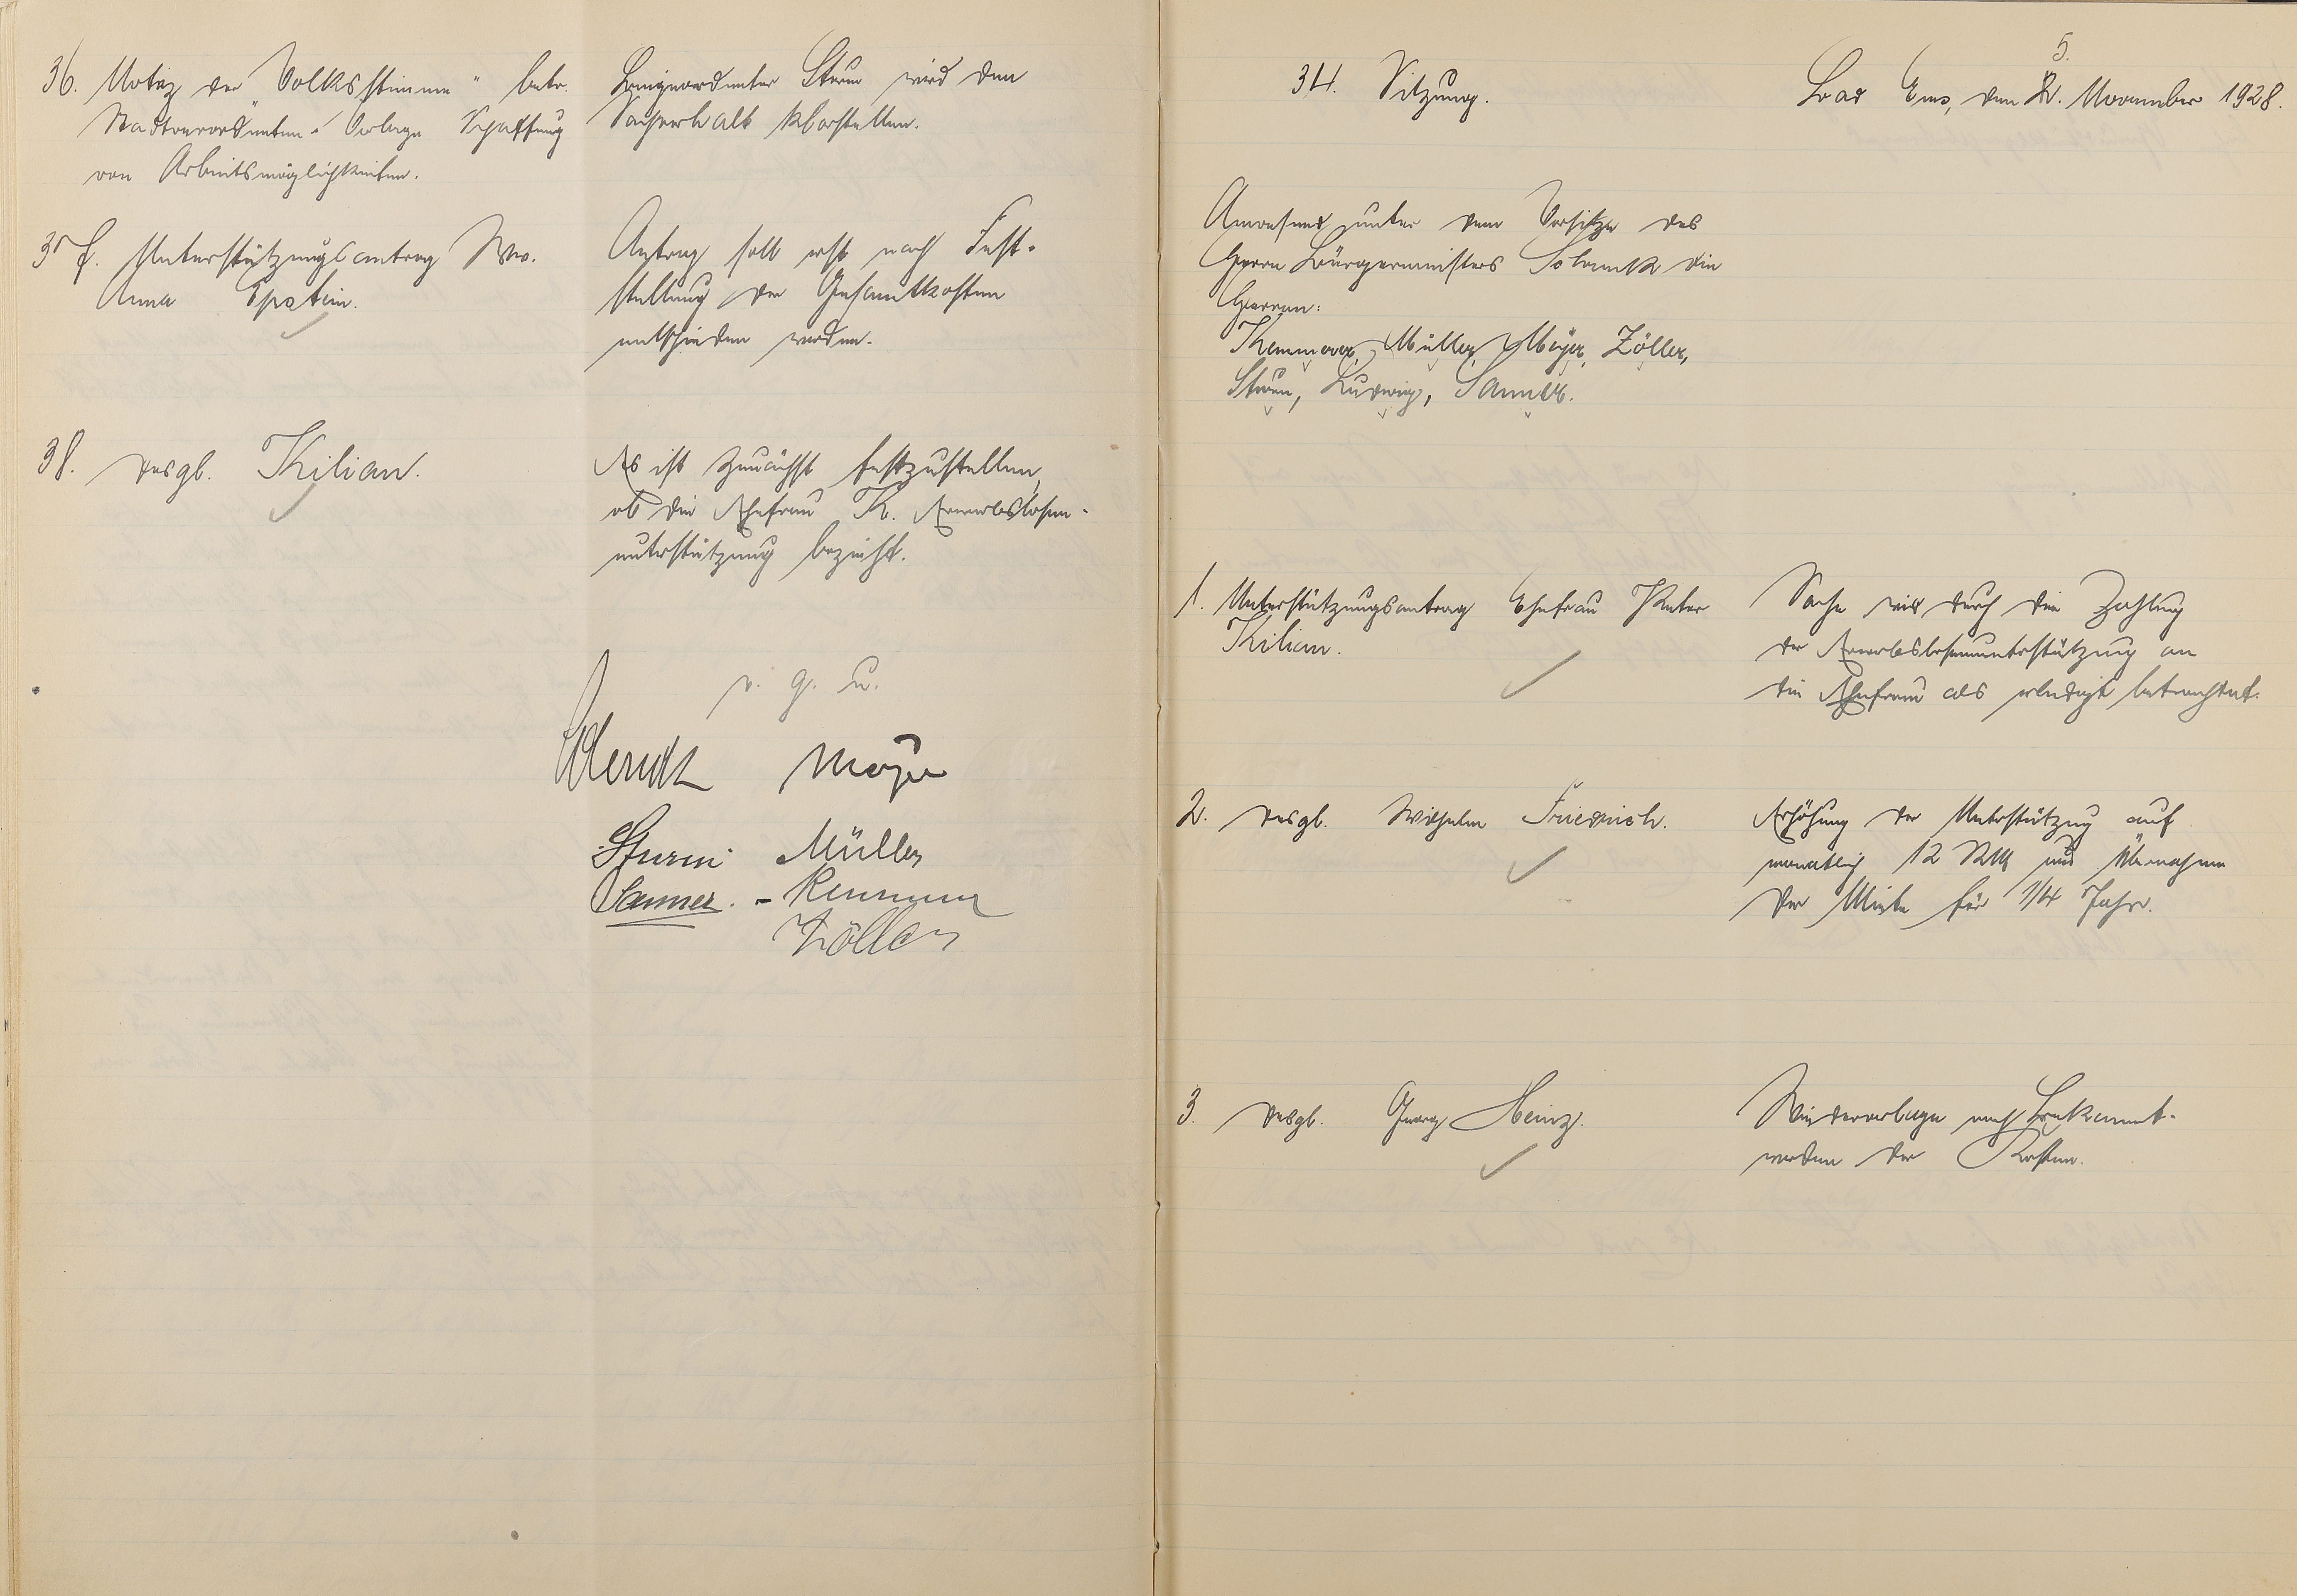 36. Notiz der "Volksstimme" betr.
Stadtverordneten-Vorlage Schaffung
von Arbeitsmöglichkeiten.
Beigeordneter Sturm wird den
Sachverhalt klarstellen.
37. Unterstützungsantrag Ww.
Anna Epstein.
Antrag soll erst nach Fest-
stellung der Gesamtkosten
entschieden werden.
38. desgl. Kilian.
Es ist zunächst festzustellen,
ob die Ehefrau K. Erwerbslosen-
unterstützung bezieht.
v. g. u.
Meyer
Sturm Müller
Sanner. - Kemmerer
Zöller
314. Sitzung.
5.
Bad Ems, den 2. November 1928.
Anwesend unter dem Vorsitze des
Herrn Bürgermeisters die
Herren:
Kemmerer, Müller, Meyer, Zöller,
Sturm, Ludwig, Sanner.
1. Unterstützungsantrag Ehefrau Peter
Kilian.
Sache wird durch die Zahlung
der Erwerbslosenunterstützung an
die Ehefrau als erledigt betrachtet.
2. desgl. Wilhelm Friedrich.
Erhöhung der Unterstützung auf
monatlich 12 RM und Übernahme
der Miete für 1/4 Jahr.
3. desgl. Georg Heinz.
Wiedervorlage nach Bekannt-
werden der Kosten.